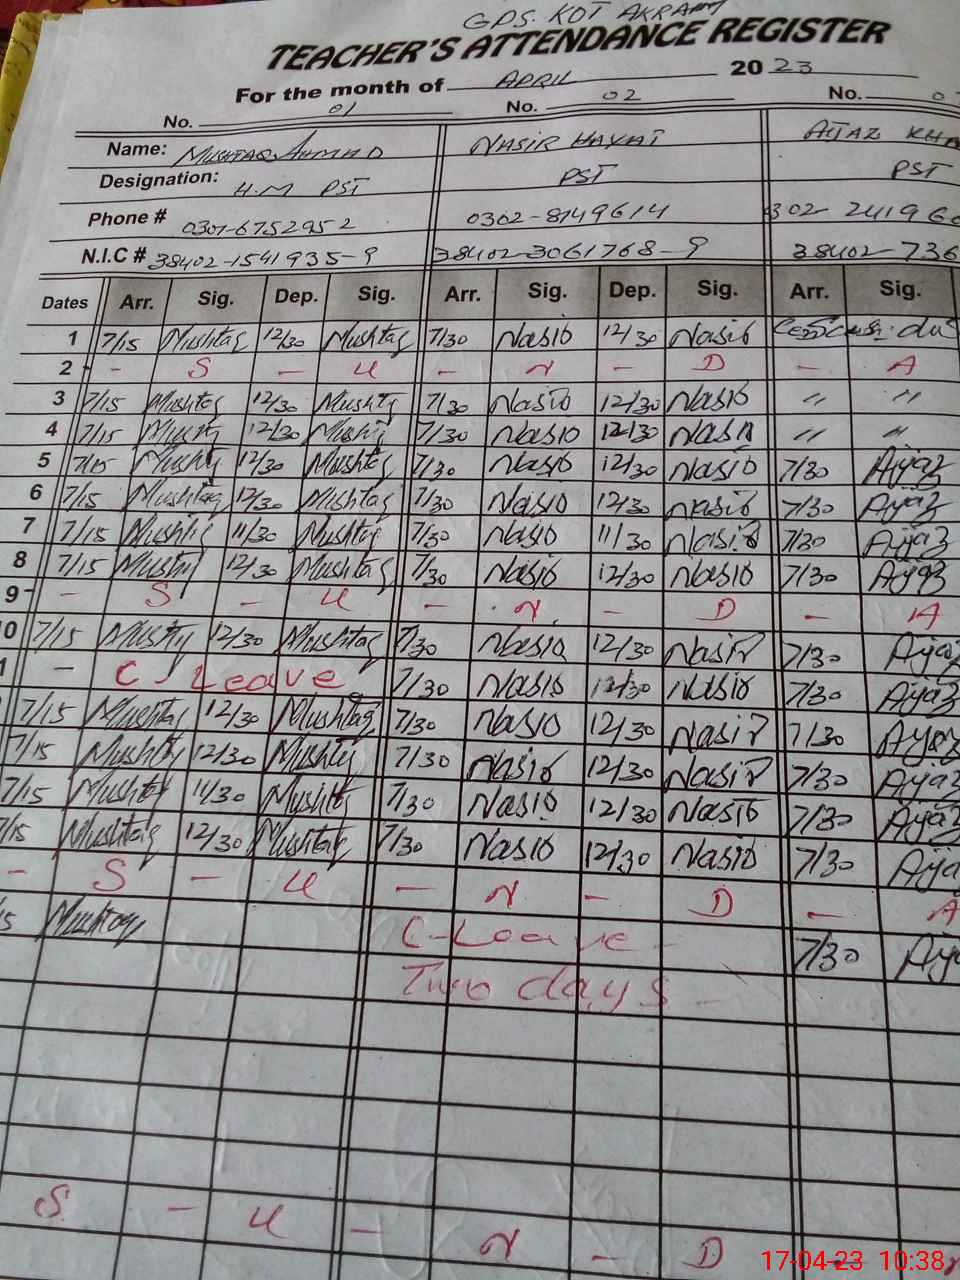 GPS. KOT AKRAM
TEACHER'S ATTENDANCE REGISTER
For the month of APRIL 2023
No. 01 No. 02 No. 0
Name: MUSHTAQ AHMAD NASIR HAYAT AIJAZ KHA
Designation: H.M PST PST PST
Phone # 0301-6752952 0302-8149614 302-241960
N.I.C # 38402-1541935-9 38402-3061768-9 38402-736
Dates Arr. Sig. Dep. Sig. Arr. Sig. Dep. Sig. Arr. Sig.
1 7/15 Mushtaq 12/30 Mushtaq 7/30 Nasir 12/30 Nasir
2 - S - U - N - D - A
3 7/15 Mushtaq 12/30 Mushtaq 7/30 Nasir 12/30 Nasir " "
4 7/15 Mushtaq 12/30 Mushtaq 7/30 Nasir 12/30 Nasir " "
5 7/15 Mushtaq 12/30 Mushtaq 7/30 Nasir 12/30 Nasir 7/30 Aijaz
6 7/15 Mushtaq 12/30 Mushtaq 7/30 Nasir 12/30 Nasir 7/30 Aijaz
7 7/15 Mushtaq 11/30 Mushtaq 7/30 Nasir 11/30 Nasir 7/30 Aijaz
8 7/15 Mushtaq 12/30 Mushtaq 7/30 Nasir 12/30 Nasir 7/30 Aijaz
9 - S - U - N - D - A
0 7/15 Mushtaq 12/30 Mushtaq 7/30 Nasir 12/30 Nasir 7/30 Aijaz
1 - C Leave 7/30 Nasir 12/30 Nasir 7/30 Aijaz
7/15 Mushtaq 12/30 Mushtaq 7/30 Nasir 12/30 Nasir 7/30 Aijaz
7/15 Mushtaq 12/30 Mushtaq 7/30 Nasir 12/30 Nasir 7/30 Aijaz
7/15 Mushtaq 11/30 Mushtaq 7/30 Nasir 12/30 Nasir 7/30 Aijaz
7/15 Mushtaq 12/30 Mushtaq 7/30 Nasir 12/30 Nasir 7/30 Aija
- S - U - N - D - A
15 Mushtaq C-Leave - 7/30 Aija
Two days -
S - U - N - D
17-04-23 10:38